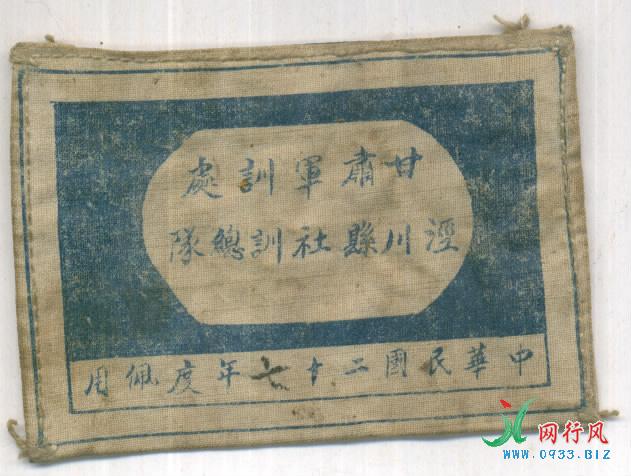 甘肅軍訓處
涇川縣社訓總隊
中華民國二十七年度佩用
网行风
WWW.0933.BIZ